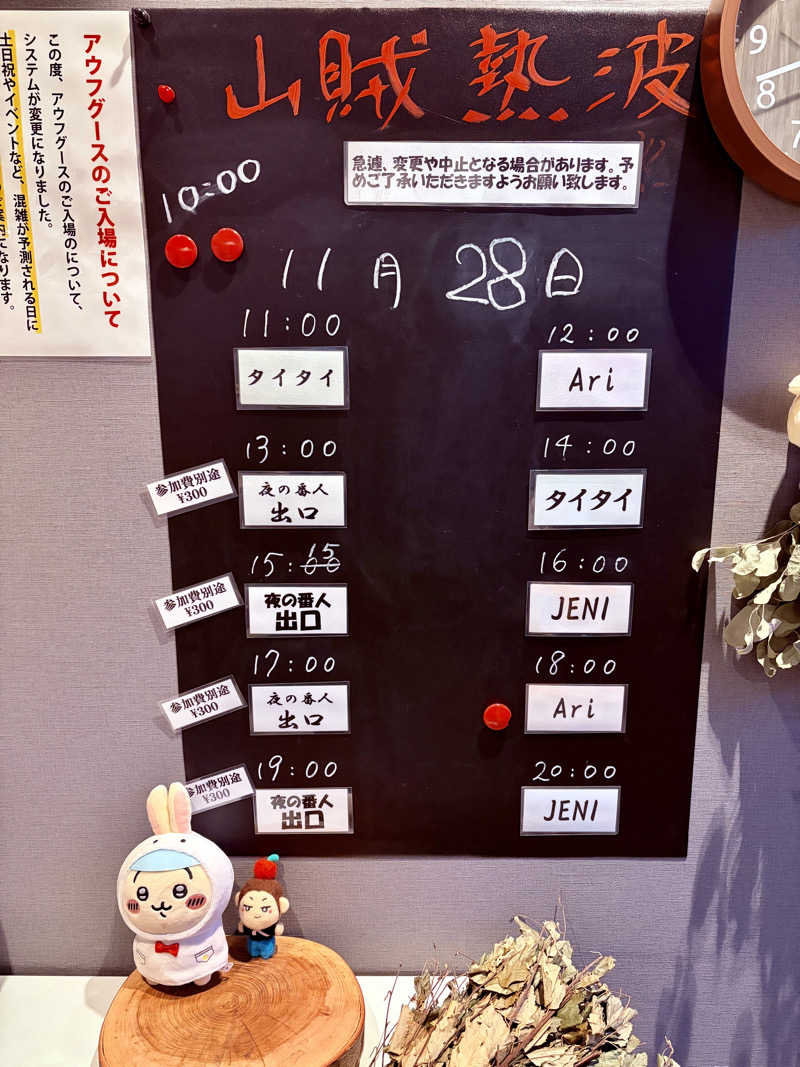 アウフグースのご入場について
この度、アウフグースのご入場のについて、
システムが変更になりました。
土日祝やイベントなど、混雑が予測される日に
山賊熱波
急遽、変更や中止となる場合があります。予
めご了承いただきますようお願い致します。
10:00
11月28日
11:00
タイタイ
12:00
Ari
13:00
参加費別途
¥300
夜の番人
出口
14:00
タイタイ
15:00
15
参加費別途
¥300
夜の番人
出口
16:00
JENI
17:00
参加費別途
¥300
夜の番人
出口
18:00
Ari
19:00
参加費別途
¥300
夜の番人
出口
20:00
JENI
9
8
7